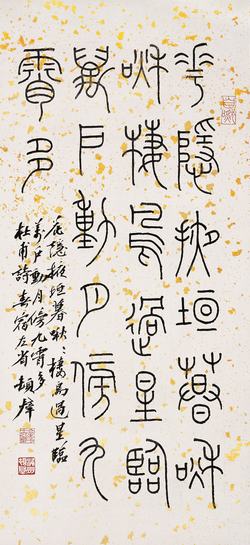 花隱掖垣暮啾
啾棲鳥過星臨
萬戶動月傍九
霄多
花隱掖垣暮啾、棲鳥過星臨
萬戶動月傍九霄多
杜甫詩春宿左省